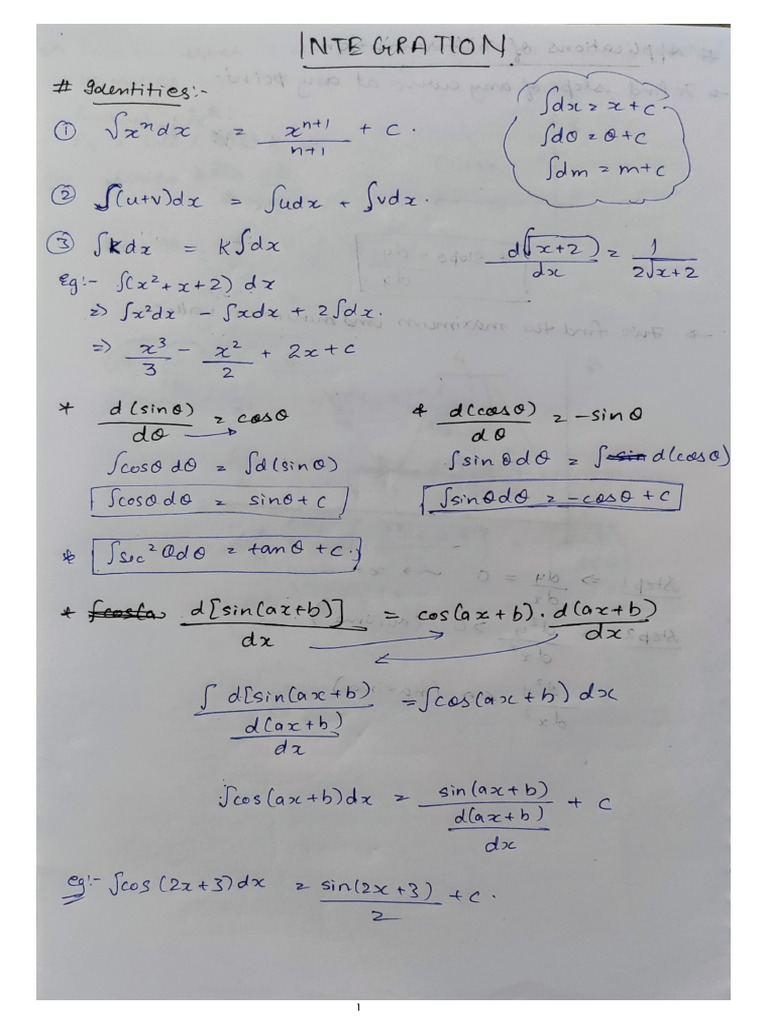 INTEGRATION.
# Identities:-
① ∫xⁿdx = xⁿ⁺¹/n+1 + c.
∫dx = x + c.
∫dθ = θ + c
∫dm = m + c
② ∫(u+v)dx = ∫udx + ∫vdx.
③ ∫Kdx = K∫dx
d(√x+2)/dx = 1/2√x+2
Eg:- ∫(x² + x + 2) dx
=> ∫x²dx - ∫xdx + 2∫dx.
=> x³/3 - x²/2 + 2x + c
* d(sinθ)/dθ = cosθ
* d(cosθ)/dθ = -sinθ
∫cosθ dθ = ∫d(sinθ)
∫sinθdθ = ∫sin d(cosθ)
∫cosθdθ = sinθ + c
∫sinθdθ = -cosθ + c
* ∫sec²θdθ = tanθ + c.
* ∫cos(a d[sin(ax+b)]/dx = cos(ax+b). d(ax+b)/dx
∫ d[sin(ax+b)/d(ax+b)/dx = ∫cos(ax+b) dx
∫cos(ax+b)dx = sin(ax+b)/d(ax+b)/dx + c
eg:- ∫cos(2x+3)dx = sin(2x+3)/2 + c.
1